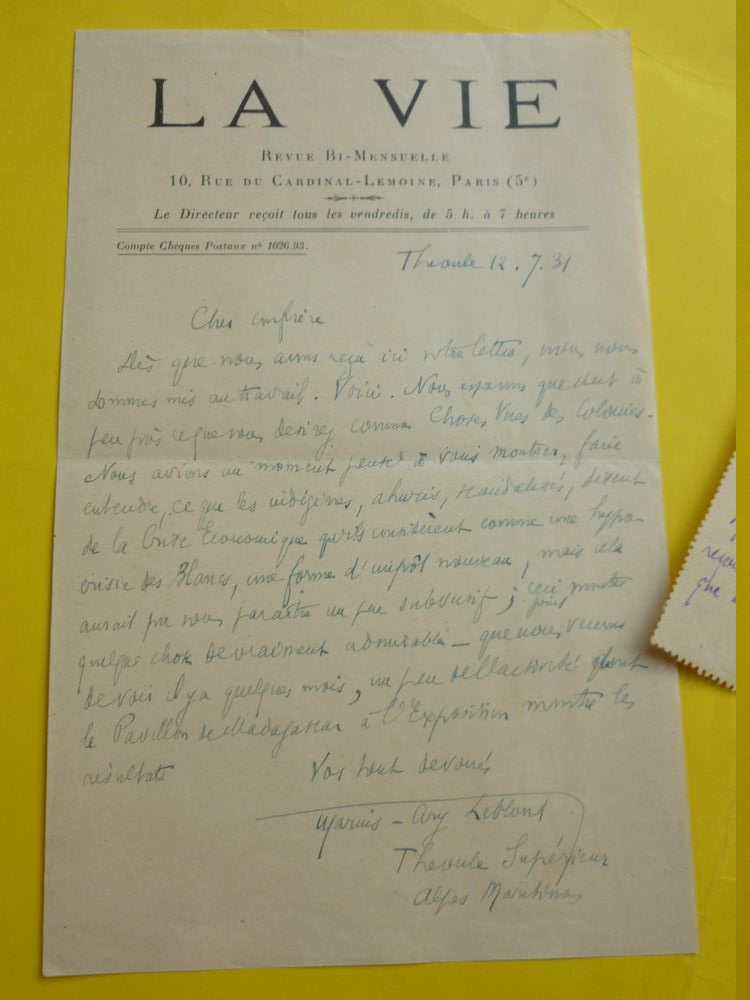 LA VIE
REVUE BI-MENSUELLE
10, RUE DU CARDINAL-LEMOINE, PARIS (5e)
Le Directeur reçoit tous les vendredis, de 5 h. à 7 heures
Compte Chèques Postaux n° 1026.93.
Theoule 12.7.31
Cher confrère
Dès que nous avons reçu ici votre lettre, nous nous
sommes mis au travail. Voici. Nous espérons que c'est à
peu près ce que vous desirez comme Choses Vues des Colonies.
Nous avions un moment pensé à vous montrer, faire
entendre, ce que les indigènes, ahuris, scandalisés, disent
de la Crise Economique qu'ils considèrent comme une hypo-
crisie des Blancs, une forme d'impôt nouveau, mais cela
aurait pu vous paraître un peu subversif; ceci montre
point
quelque chose de vraiment admirable – que nous venons
de voir il y a quelques mois, un peu de l'activité dont
le Pavillon de Madagascar à l'Exposition montre les
résultats
Vos tout dévoués
Marius-Ary Leblond
Theoule Supérieur
Alpes Maritimes
que